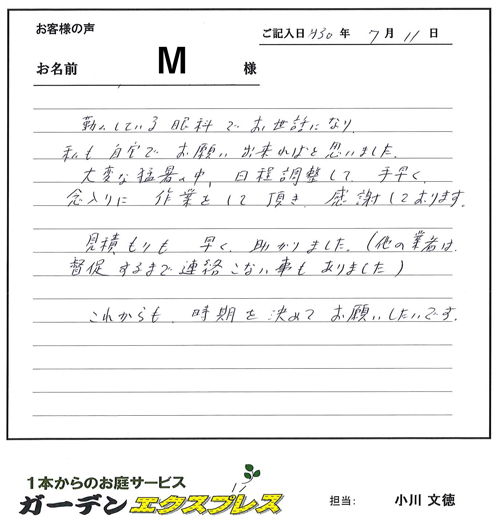 お客様の声
ご記入日 H30 年 7 月 11 日
お名前 M 様
勤めている眼科でお世話になり
私も自宅でお願い出来ればと思いました。
大変な猛暑の中、日程調整して、手早く、
念入りに作業をして頂き、感謝しております。
見積もりも早く、助かりました。(他の業者は、
督促するまで連絡こない事もありました)
これからも、時期を決めてお願いしたいです。
1本からのお庭サービス
ガーデンエクスプレス
担当: 小川 文徳